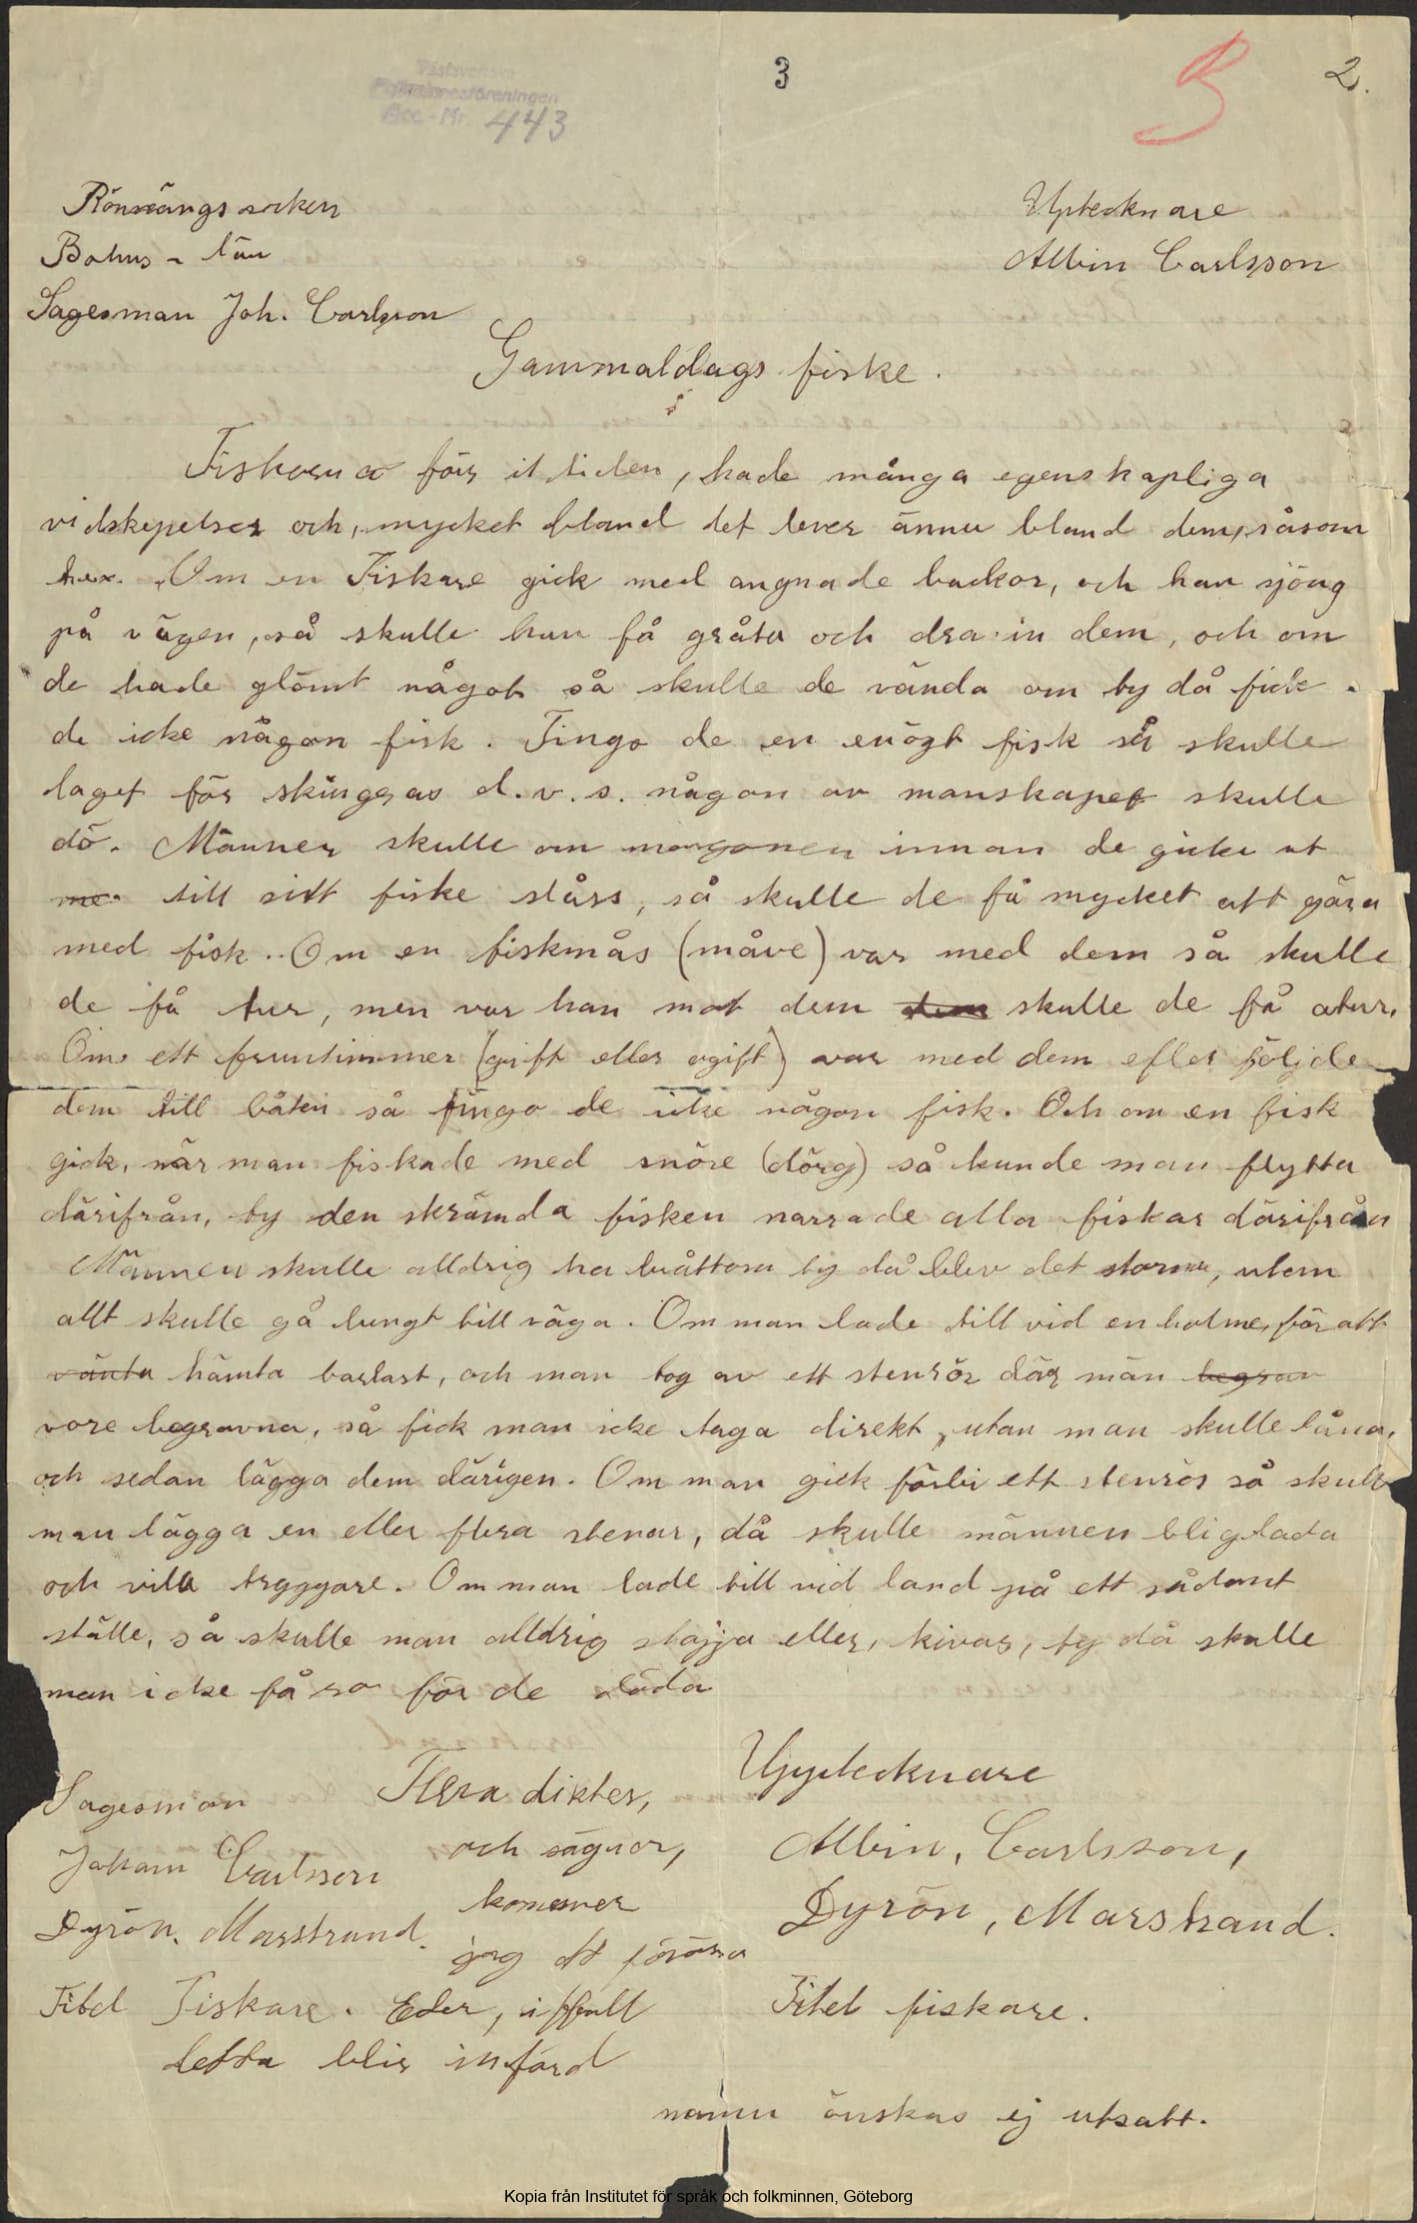 3
2.
Västsvenska
Folkminnesföreningen
Acc.-Nr. 443
Rönnängs socken
Bohus - län
Sagesman Joh. Carlsson
Uptecknare
Albin Carlsson
Gammaldags fiske.
Fiskarna förr i tiden, hade många egenskapliga
vidskepelser och, mycket bland det lever ännu bland dem, såsom
hex. Om en Fiskare gick med angnade backor, och han sjöng
på vägen, så skulle han få gråta och dra in dem, och om
de hade glömt något så skulle de vända om ty då fick
de icke någon fisk. Fingo de en enögt fisk så skulle
laget för skinggas d.v.s. någon av manskapet skulle
dö. Männen skulle om morgonen innan de gicke ut
me till sitt fiske slåss, så skulle de få mycket att göra
med fisk. Om en fiskmås (måve) var med dem så skulle
de få tur, men var han mot dem skulle de få otur.
Om ett fruntimmer (gift eller ogift) var med dem efter följde
dem till båten så fingo de icke någon fisk. Och om en fisk
gick, när man fiskade med snöre (dörg) så kunde man flytta
därifrån, ty den skrämda fisken narrade alla fiskar därifrån
Männen skulle alldrig ha bråttom ty då blev det storm, utom
allt skulle gå lungt till väga. Om man lade till vid en holme, för att
vänta hämta barlast, och man tog av ett stenrör där män begrav
vore begravna, så fick man icke taga direkt, utan man skulle låna,
och sedan lägga dem därigen. Om man gick förbi ett stenrös så skulle
man lägga en eller flera stenar, då skulle männen bli glada
och vila tryggare. Om man lade till vid land på ett sådant
ställe, så skulle man alldrig slajja eller, kivas, ty då skulle
man icke få ro för de döda
Sagesman
Johan Carlsson
Dyrön. Marstrand.
Titel Fiskare.
Flera dikter,
och sägner,
kommer
jag att förära
Eder, ifall
detta blir införd
Upptecknare
Albin, Carlsson,
Dyrön, Marstrand.
Titel fiskare.
namn önskas ej utsatt.
Kopia från Institutet för språk och folkminnen, Göteborg